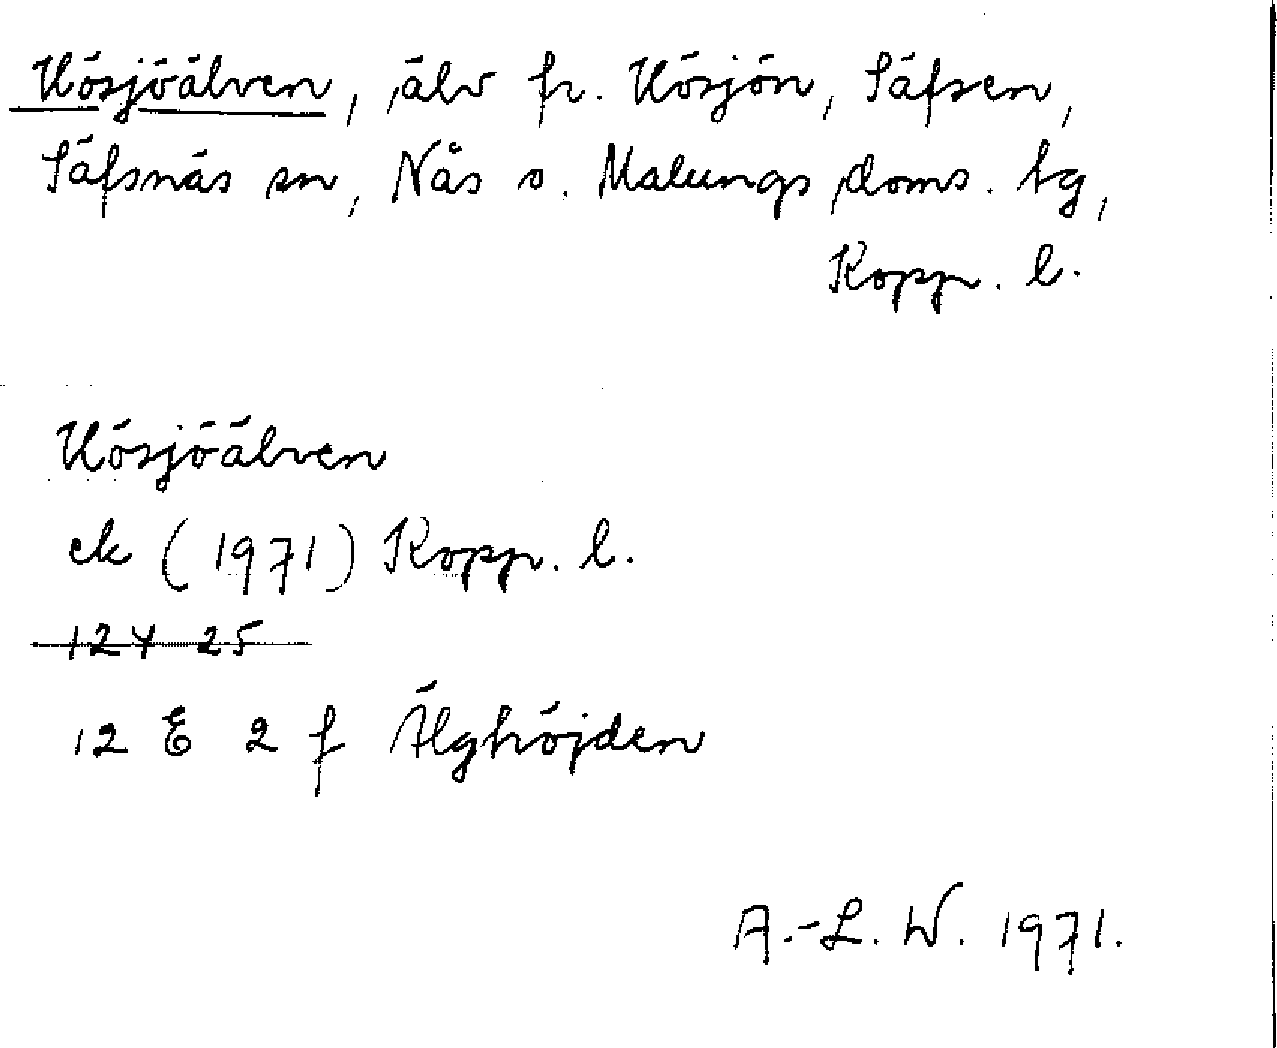 Hösjöälven, älv fr. Hösjön, Säfsen,
Säfsnäs sn, Nås o. Malungs doms. tg,
Kopp. l.
Hösjöälven
ek (1971) Kopp. l.
12 E 2 f Älghöjden
A.-L. W. 1971.